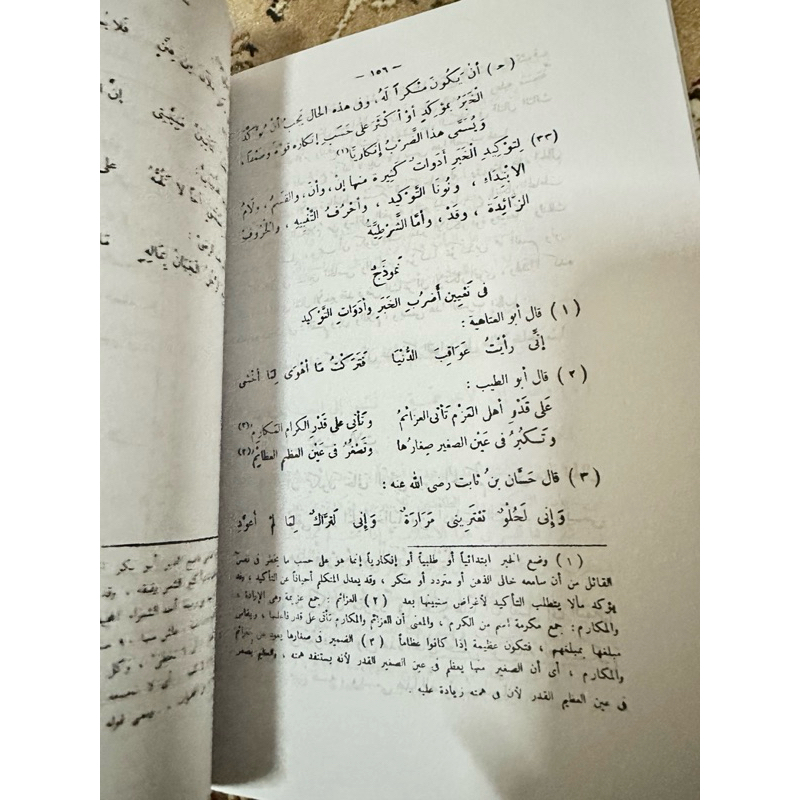 - ١٥٦ -
(ح) أنْ يَكُونَ مُنْكِراً لَهُ، وفى هذه الحال يَجِبُ أنْ يُؤَكَّدَ
الْخَبَرُ بِمُؤَكِّدٍ أوْ أكْثَرَ على حَسَبِ إنكاره قوَّة وضَعْفا،
وَيُسَمَّى هذا الضَّرْبُ إنكاريًّا(١)
(٣٣) لِتَوْكِيدِ الْخَبَرِ أدَوَاتٌ كثِيرة منها إنّ، وأنّ، والقَسَمُ، ولَامُ
الاِبْتِدَاء، ونُونَا التَّوْكيد، وأحْرُفُ التَّنْبِيهِ، والْحُرُوفُ
الزَّائِدَةُ، وقَدْ، وأمّا الشَّرْطِيَّةُ
نَمُوذَجٌ
فى تَعْيين أضرُبِ الخَبَرِ وأدَوَاتِ التَّوْكيد
(١) قال أبو العتاهية:
إنِّى رأيْتُ عَوَاقِبَ الدُّنْيَا فَتَرَكْتُ مَا أهْوَى لِمَا أخْشَى
(٢) قال أبو الطيب:
عَلَى قَدْرِ أهل العَزْم تَأتى العزائمُ وتَأتى على قَدْرِ الكرام المَكارِمُ(٢)
وتَكْبُرُ فى عَيْن الصغير صِغارُها وتَصْغُرُ فى عَيْن العظيم العظائِمُ(٣)
(٣) قال حَسَّان بنُ ثابت رضى الله عنه:
وَإنى لَحُلْوٌ تَعْتَرِينِى مَرَارَةٌ وَإنى لَتَرَّاكٌ لِمَا لَمْ أعَوَّدِ
(١) وضع الخبر ابتدائياً أو طلبياً أو إنكارياً إنما هو على حسب ما يخطر فى نفس
القائل من أن سامعه خالى الذهن أو متردد أو منكر، وقد يعدل المتكلم أحياناً عن التأكيد، وقد
يؤكد مالا يتطلب التأكيد لأغراض سنبينها بعد (٢) العزائم: جمع عزيمة وهى الإرادة،
والمكارم: جمع مكرمة اسم من الكرم، والمعنى أن العزائم والمكارم تأتى على قدر فاعلها، ويقاس
مبلغها بمبلغهم، فتكون عظيمة إذا كانوا عظاماً (٣) الضمير فى صغارها يعود على العزائم
والمكارم، أى أن الصغير منها يعظم فى عين الصغير القدر لأنه يستنفد همته، والعظيم يصغر
فى عين العظيم القدر لأن فى همته زيادة عليه.